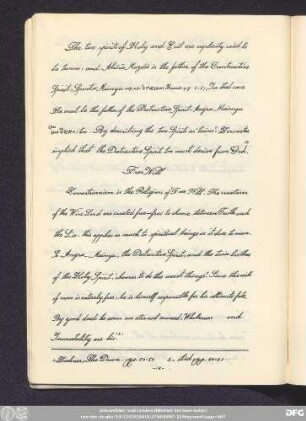 The two spirits of Holy and Evil are explicitly said to
be twins, and Ahura Mazda is the father of the Constructive
Spirit, Spenta Mainyu
He must be the father of the Destructive Spirit Angra Mainyu
too. By describing the two Spirit as twins, Zoroaster
implied that the Destructive Spirit too must derive from God.
Free Will
Zoroastrianism is the Religion of Free Will. The creatures
of the Wise Lord are created free-free to choose between Truth and
the Lie. this applies as much to spiritual beings as it does to man.
So Angra Mainyu, the Destructive Spirit, and the twin brother
of the Holy Spirit, "chooses to do the worst things". Since the will
of man is entirely free, he is himself responsible for his ultimate fate.
By good deeds he earns an eternal reward, Wholeness and
Immortality are his
Zaehner, The Dawn 2. ibid